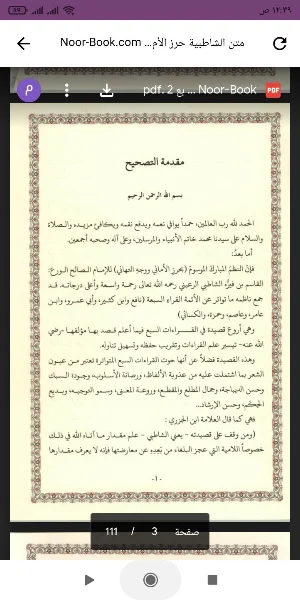 ١٢:٣٩ ص
متن الشاطبية حرز الأم... Noor-Book.com
Noor-Book ... بع 2 .pdf
PDF
P
مقدمة التصحيح
بسم الله الرحمن الرحيم
الحمد لله رب العالمين، حمداً يوافي نعمه ويدفع نقمه ويكافئ مزيده، والصلاة
والسلام على سيدنا محمد خاتم الأنبياء والمرسلين، وعلى آله وصحبه أجمعين.
أما بعدُ:
فإنَّ النظم المبارك الموسوم (بحرز الأماني ووجه التهاني) للإمام الصالح الورع:
القاسم بن فِيرُّه الشاطبي الرعيني رحمه الله تعالى رحمة واسعة وأعلى درجاته. قد
جمع ناظمه ما تواتر عن الأئمة القراء السبعة (نافع وابن كثير، وأبي عمرو، وابن
عامر، وعاصم، وحمزة، والكسائي)
وهي أروع قصيدة في القراءات السبع فيما أعلم قصد بها مؤلفها - رضي
الله عنه - تيسير علم القراءات وتقريب حفظه وتسهيل تناوله.
وهذه القصيدة فضلاً عن أنها حوت القراءات السبع المتواترة تعتبر من عيون
الشعر بما اشتملت عليه من عذوبة الألفاظ، ورصانة الأسلوب، وجودة السبك
وحسن الديباجة، وجمال المطلع والمقطع، وروعة المعنى، وسمو التوجيه، وبديع
الحِكم، وحسن الإرشاد...
فهي كما قال العلامة ابن الجزري:
(ومن وقف على قصيدته - يعني الشاطبي - علم مقدار ما آتاه الله في ذلك
خصوصاً اللامية التي عجز البلغاء من بَعده عن معارضتها فإنه لا يعرف مقدارها
-١٠-
صفحة 3 / 111